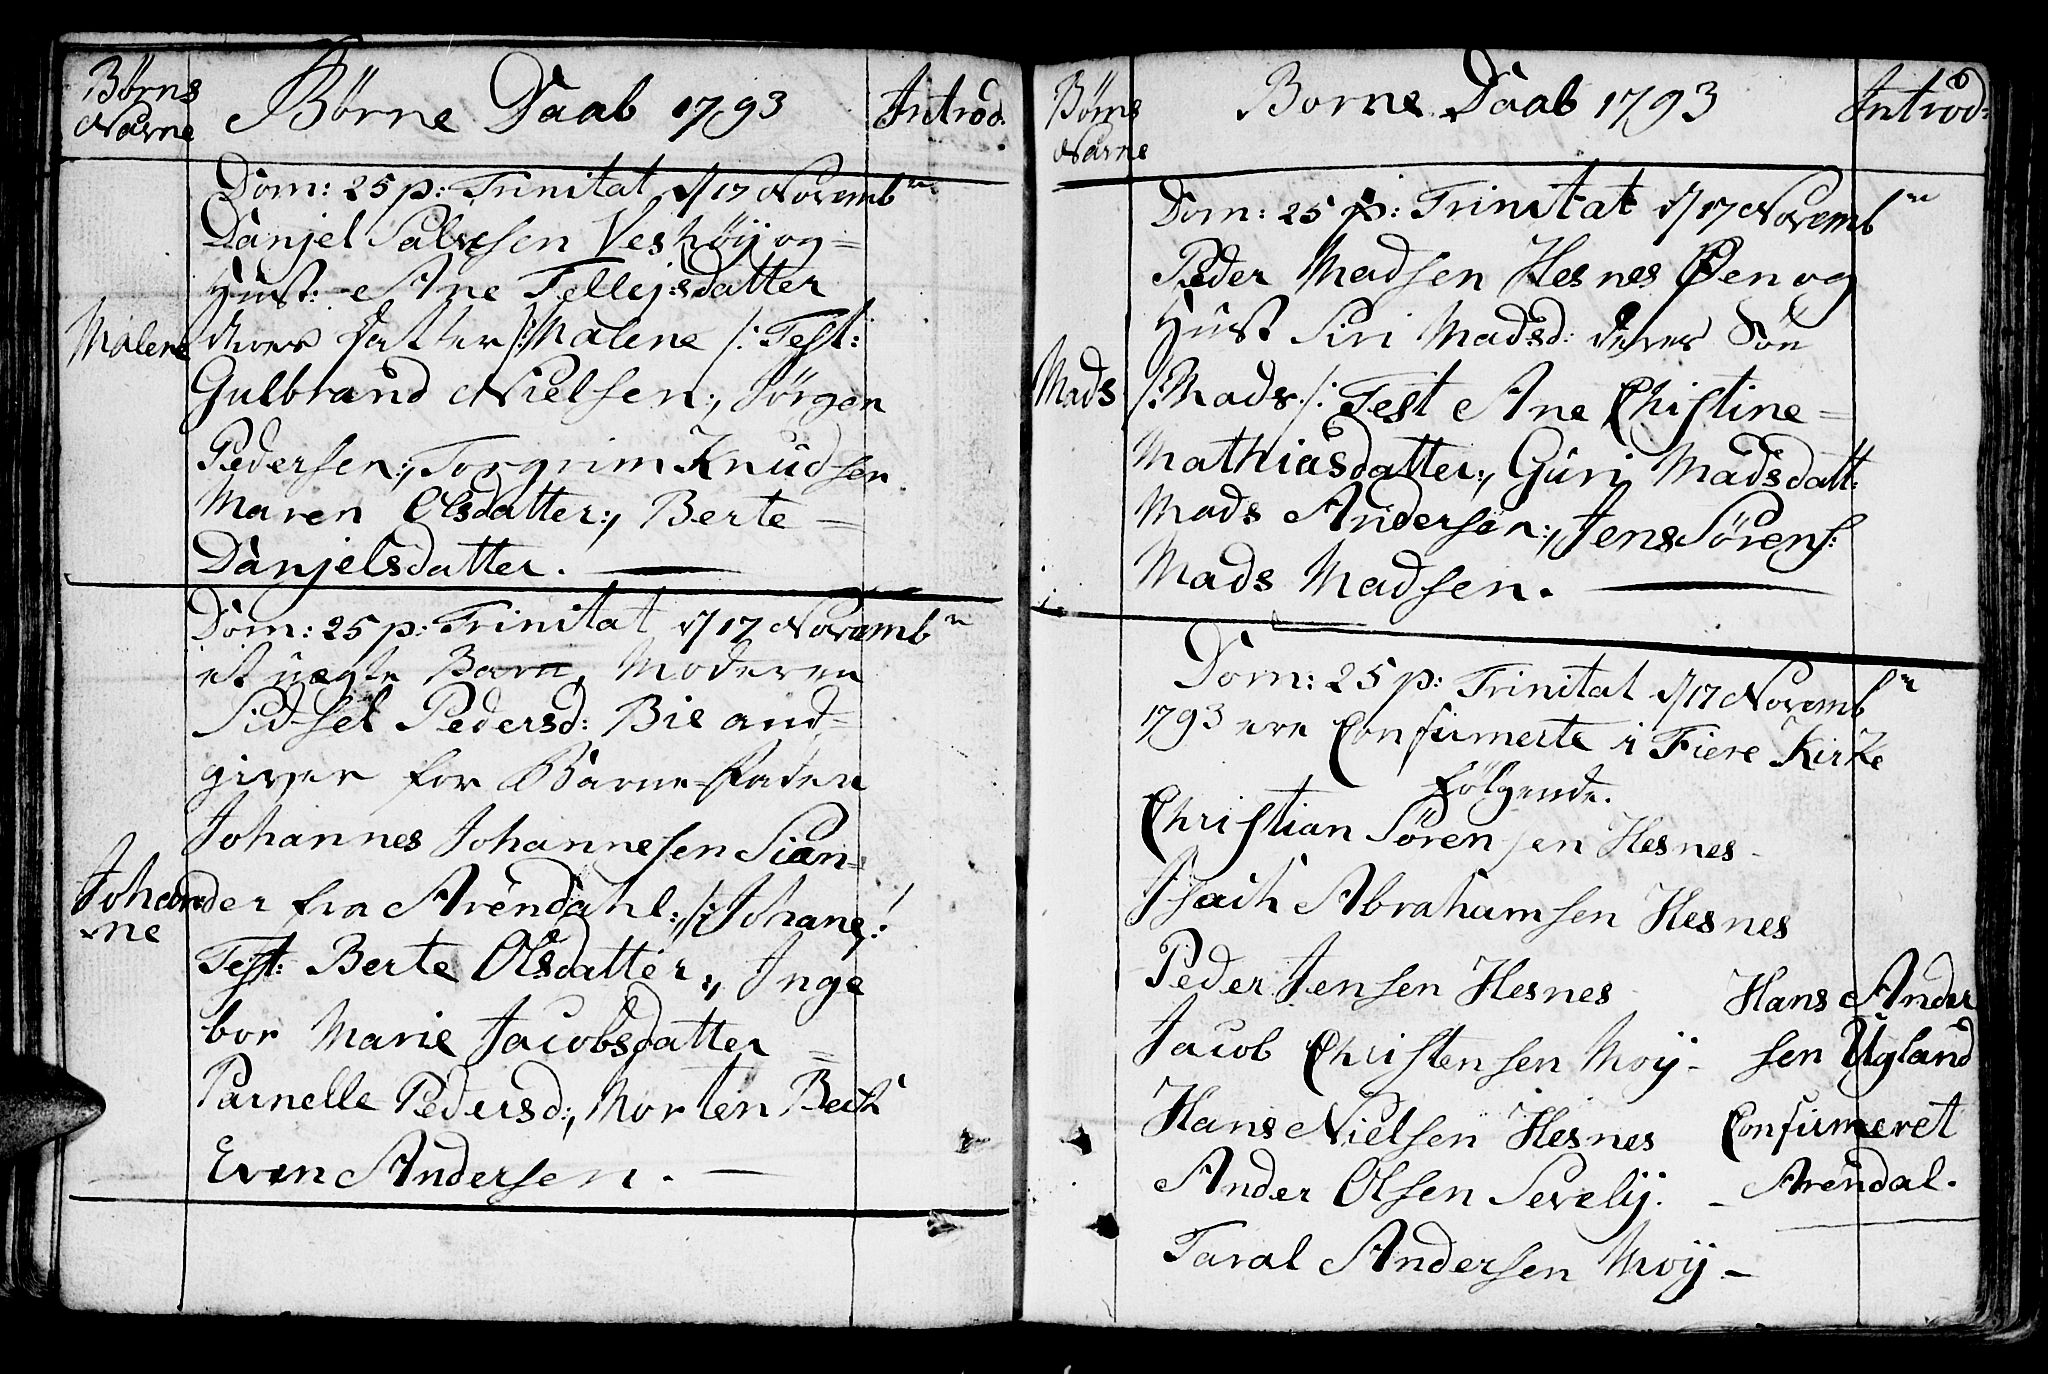 Børns
Navne
Børne Daab 1793
Introd.
Dom: 25 p: Trinitat d/ 17 Novembr
Danjel Salvesen Veshøij og =
Hust: Ane Tellejsdatter
Malene
deres Datter /: Malene /: Test:
Gulbrand Nielsen:, Jørgen
Pedersen:, Torgrim Knudsen
Maren Olsdatter:, Berte =
Danjelsdatter. —
Dom: 25 p: Trinitat d/ 17 Novembr
et uægte Barn, Moderen
Sidsel Pedersd: Bie and=
giver for Barne-Faderen
Johannes Johannesen
Johan=
ne
der fra Arendahl:, /: Johane /:
Test: Berte Olsdatter:, Inge
bor Marie Jacobsdatter =
Parnelle Pedersd:, Morten Bech
Even Andersen. —
Børns
Navne
Borne Daab 1793
Introd:
Dom: 25 p: Trinitat d/ 17 Novembr
Peder Madsen Hesnes Øen og
Hust Siri Madsd: deres Søn
Mads
/: Mads /: Test Ane Christine =
Mathiasdatter:, Guri Madsdatt:
Mads Andersen:, Jens Sørens:
Mads Madsen. —
Dom: 25 p: Trinitat d/ 17 Novembr
1793 ere Confirmerte i Fiere Kirke
følgende.
Christian Sørensen Hesnes -
Isach Abrahamsen Hesnes
Peder Jensen Hesnes
Jacob Christensen Moij -
Hans Nielsen Hesnes
Ander Olsen Sevelij. -
Taral Andersen Moij -
Hans Ander
sen Ugland
Confirmeret
Arendal.